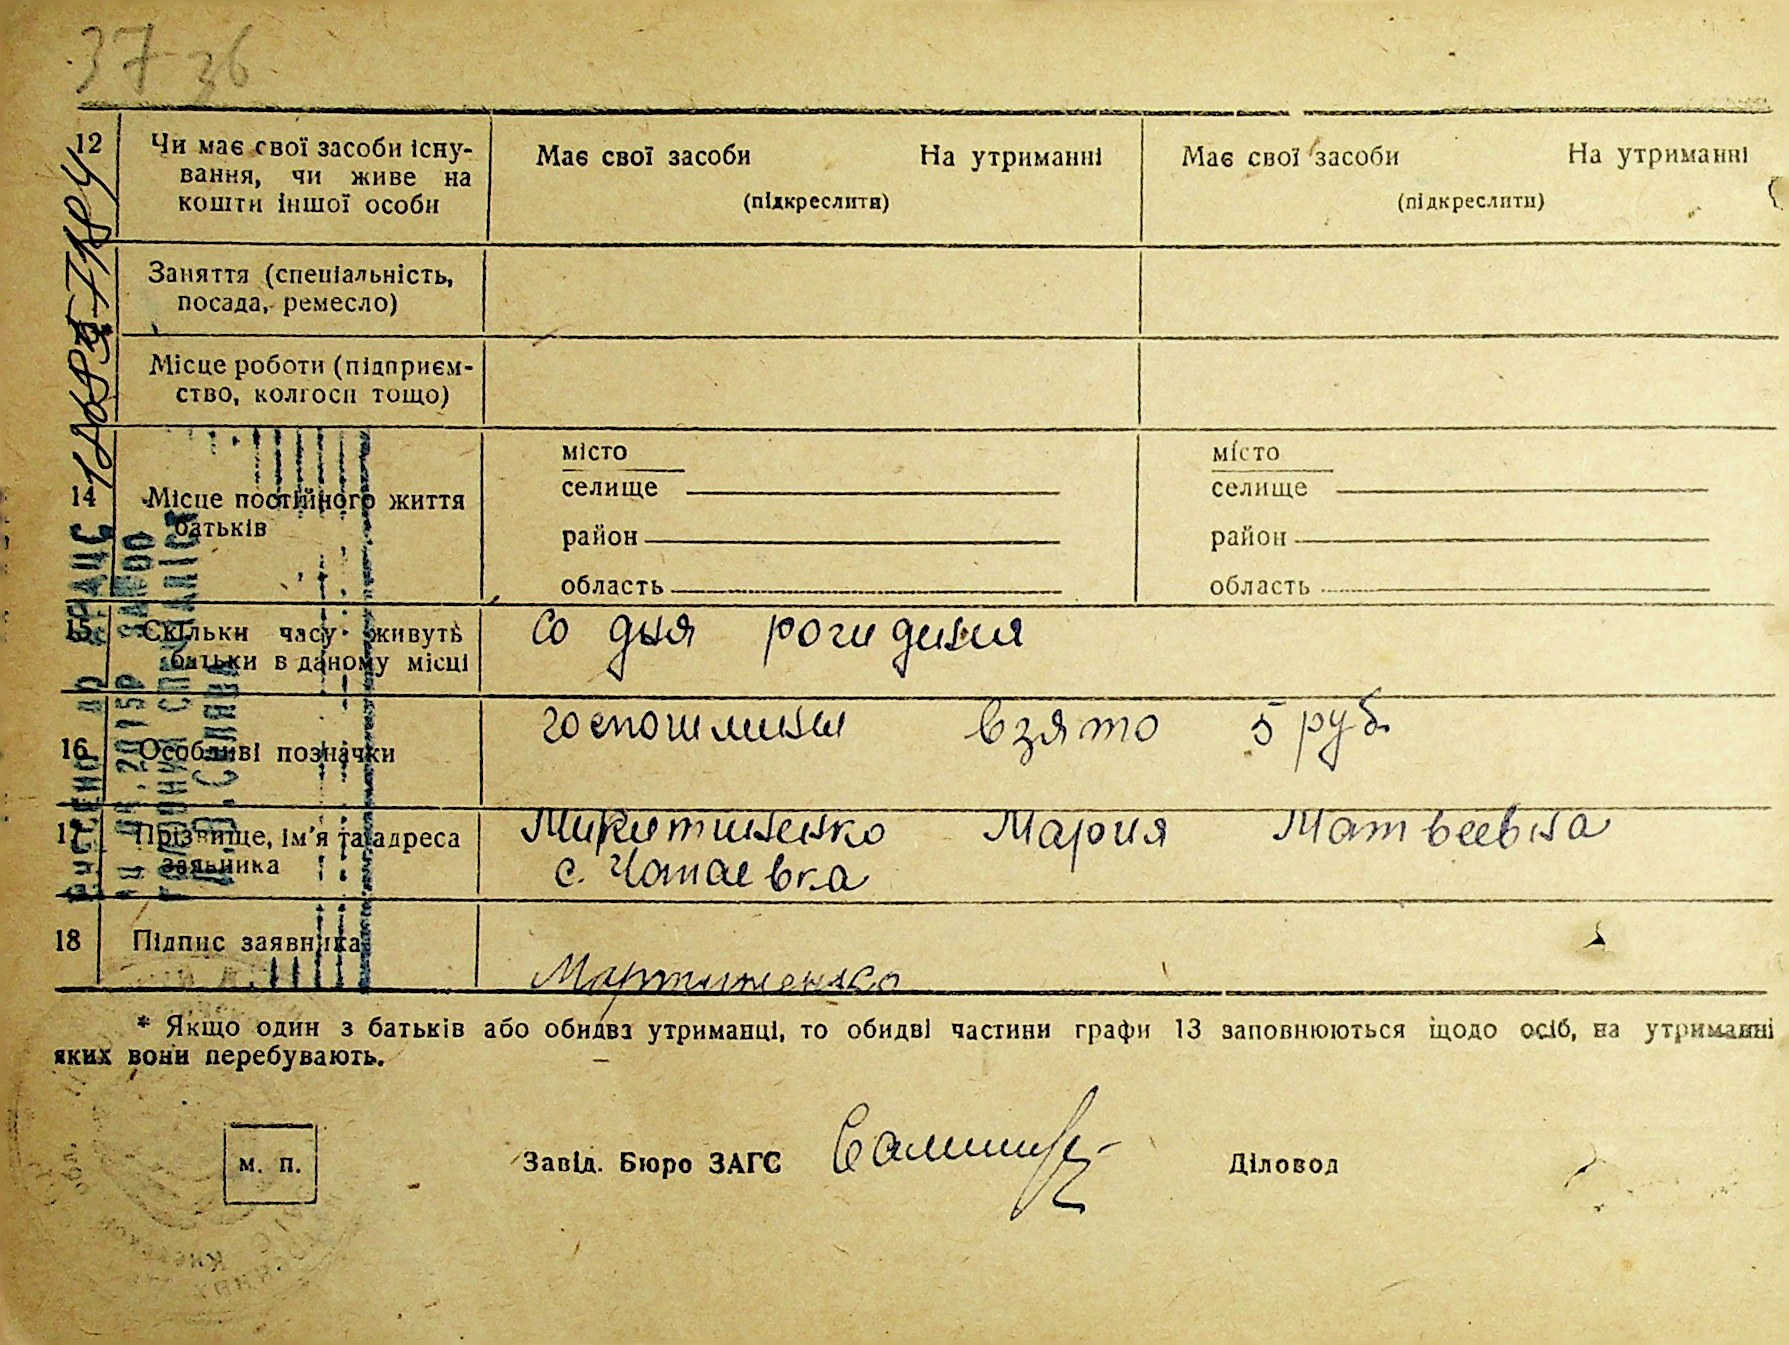 37 36
12 Чи має свої засоби існу- Має свої засоби На утриманні Має свої засоби На утриманні
вання, чи живе на
кошти іншої особи (підкреслити) (підкреслити)
Заняття (спеціальність,
посада, ремесло)
Місце роботи (підприєм-
ство, колгосп тощо)
14 Місце постійного життя
батьків
місто місто
селище селище
район район
область область
15 Скільки часу живуть Со дня рождения
батьки в даному місці
16 Особливі позначки госпошлины взято 5 руб.
17 Прізвище, ім'я та адреса Мария Матвеевна
заявника с.
18 Підпис заявника
* Якщо один з батьків або обидва утриманці, то обидві частини графи 13 заповнюються щодо осіб, на утриманні
яких вони перебувають.
м. п. Завід. Бюро ЗАГС Діловод